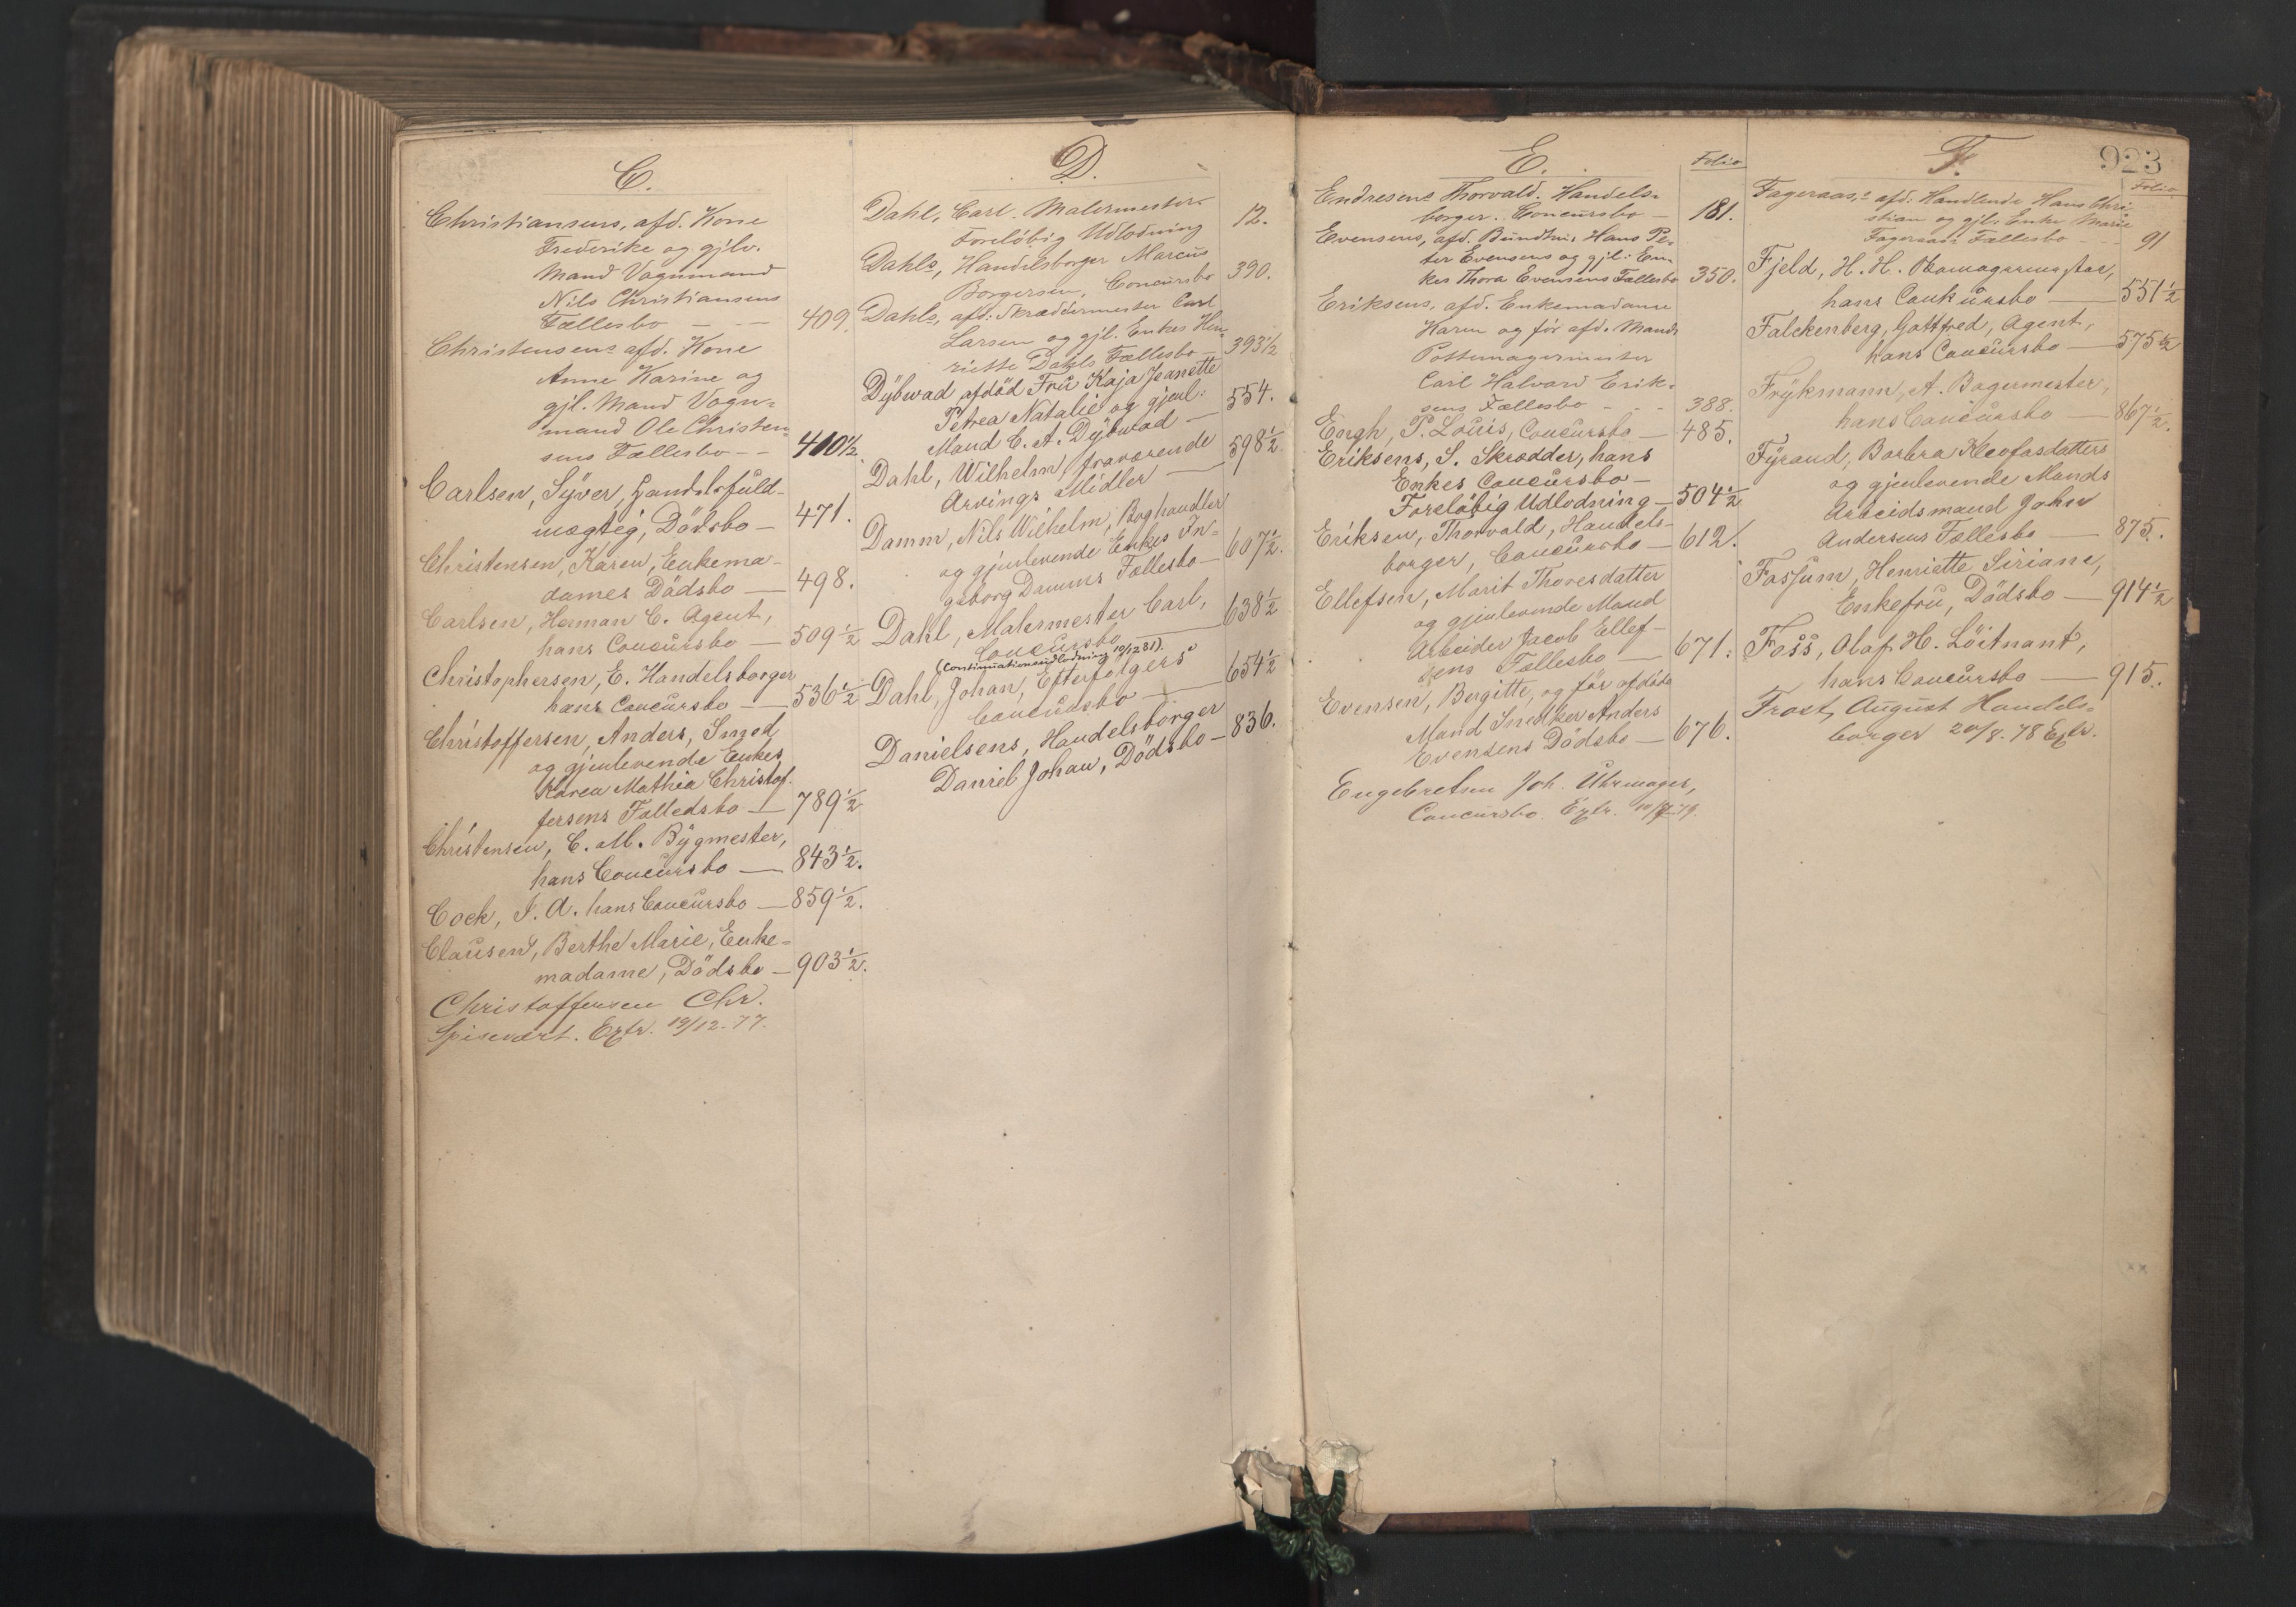 C.
Christiansens, afd. Kone
Frederike og gjlv.
Mand Vognmand
Nils Christiansens
Fællesbo — — — 409.
Christensens afd. Kone
Anne Karine og
gjl. Mand Vogn-
mand Ole Christen-
sens Fællesbo — — 410½.
Carlsen, Syver, Handelsfuld-
mægtig, Dödsbo — 471.
Christensen, Karen, Enkema-
dames Dödsbo — 498.
Carlsen, Herman C. Agent,
hans Concursbo — 509½
Christophersen, E. Handelsborger
hans Concursbo — 536½
Christoffersen, Anders, Smed
og gjenlevende Enkes
Karen Mathea Christof-
fersens Fælledsbo — 789½
Christensen, C. M. Bygmester,
hans Concursbo — 843½.
Cock, J. A. hans Concursbo — 859½.
Clausen, Berthe Marie, Enke-
madame, Dödsbo — 903½.
Christoffersen Chr.
Spisevært. Extr. 19/12.77.
D.
Dahl, Carl. Malermester.
Foreløbig Udlodning 12.
Dahls, Handelsborger Marcus
Borgersen, Concursbo 390.
Dahls, afd: Skræddermester Carl
Larsen og gjl. Enkes Hen-
riette Dahls Fællesbo — 393½
Dybwad afdöd Fru Kaja Jeanette
Petrea Natalie og gjenl:
Mand C. A. Dybwad — 554.
Dahl, Wilhelm, fraværende
Arvings Midler — 598½
Damm, Nils Wilhelm, Boghandler
og gjenlevende Enkes In-
geborg Damms Fællesbo — 607½.
Dahl, Malermester Carl,
Concursbo — 638½
(Continuationsudlodning 10/12 81).
Dahl, Johan, Efterfølgers
Concursbo — 654½
Danielsens, Handelsborger
Daniel Johan, Dödsbo — 836.
E.
Folio
Endresens Thorvald. Handels-
borger. Concursbo — 181.
Evensens, afd. Bundtm. Hans Pe-
ter Evensens og gjl: En-
kes Thora Evensens Fællesbo 350.
Eriksens, afd. Enkemadame
Karen og før afd. Mands
Pottemagermester
Carl Halvard Erik-
sens Fællesbo — — — 388.
Engh, P. Louis, Concursbo — 485.
Eriksens, S. Skrædder, hans
Enkes Concursbo —
Foreløbig Udlodning — 504½
Eriksen, Thorvald, Handels-
borger, Concursbo — 612.
Ellefsen, Marit Thoresdatter
og gjenlevende Mand
Arbeider Jacob Ellef-
sens Fællesbo — 671.
Evensen, Bergitte, og för afdöde
Mand Snedker Anders
Evensens Dödsbo — 676.
Engebretsen Joh. Uhrmager,
Concursbo. Extr. 79.
F.
923
Folio
Fageraas, afd: Handlende Hans Chri-
stian og gjl: Enke Marie
Fageraas Fællesbo — — 91
Fjeld, H. H.
hans Conkursbo — 551½
Falckenberg, Gottfred, Agent,
hans Concursbo — 575½
Frykmann, A. Bagermester,
hans Concursbo — 867½.
Fyrand, Barbra Kleofasdatters
og gjenlevende Mands
Arbeidsmand John
Andersens Fællesbo — 875.
Fossum, Henriette Siriane,
Enkefru, Dödsbo — 914½
Foss, Olaf H. Löitnant,
hans Concursbo — 915.
Frost, August Handels-
borger 20/8. 78 Extr.